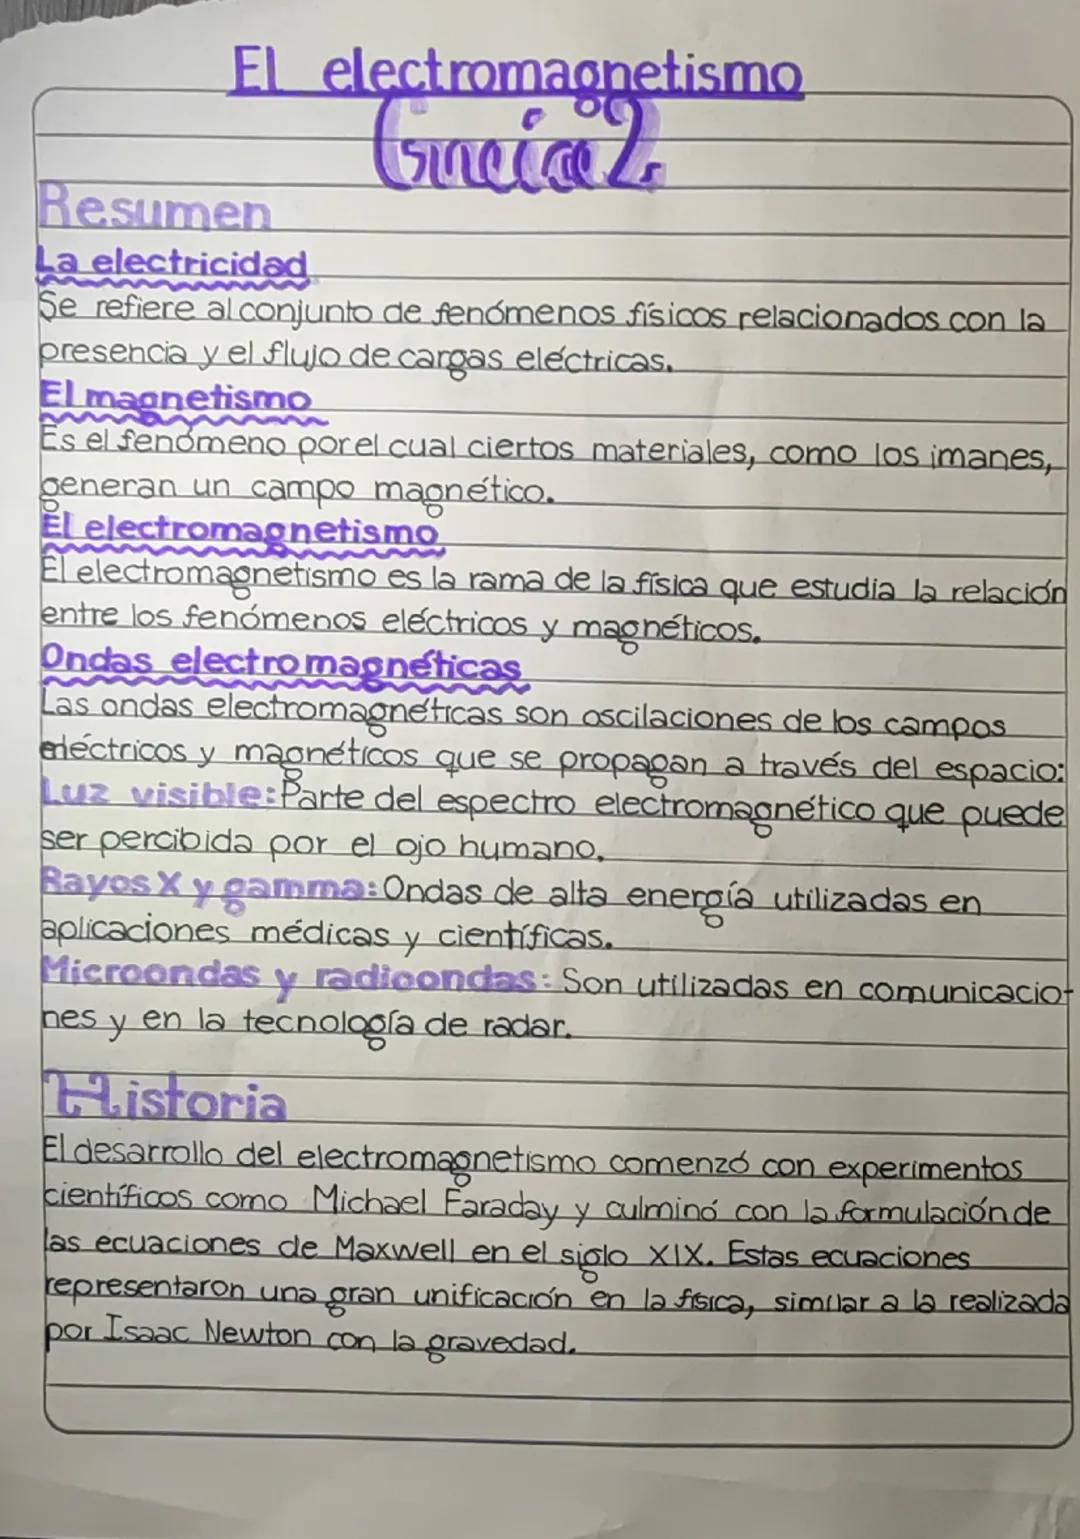 El electromagnetismo
Resumen
La electricidad
Se refiere al conjunto de fenómenos físicos relacionados con la
presencia y el flujo de cargas eléctricas.
El magnetismo
Es el fenómeno por el cual ciertos materiales, como los imanes,
generan un campo magnético.
El electromagnetismo
El electromagnetismo es la rama de la física que estudia la relación
entre los fenómenos eléctricos y magnéticos.
Ondas electromagnéticas
Las ondas electromagnéticas son oscilaciones de los campos
eléctricos y magnéticos que se propagan a través del espacio:
Luz visible: Parte del espectro electromagnético que puede
ser percibida por el ojo humano.
Rayos X y gamma: Ondas de alta energía utilizadas en
aplicaciones médicas y científicas.
Microondas y radioondas: Son utilizadas en comunicacio-
nes y en la tecnología de radar.
Historia
El desarrollo del electromagnetismo comenzó con experimentos
científicos como Michael Faraday y culminó con la formulación de
las ecuaciones de Maxwell en el siglo XIX. Estas ecuaciones
representaron una gran unificación en la física, similar a la realizada
por Isaac Newton con la gravedad.